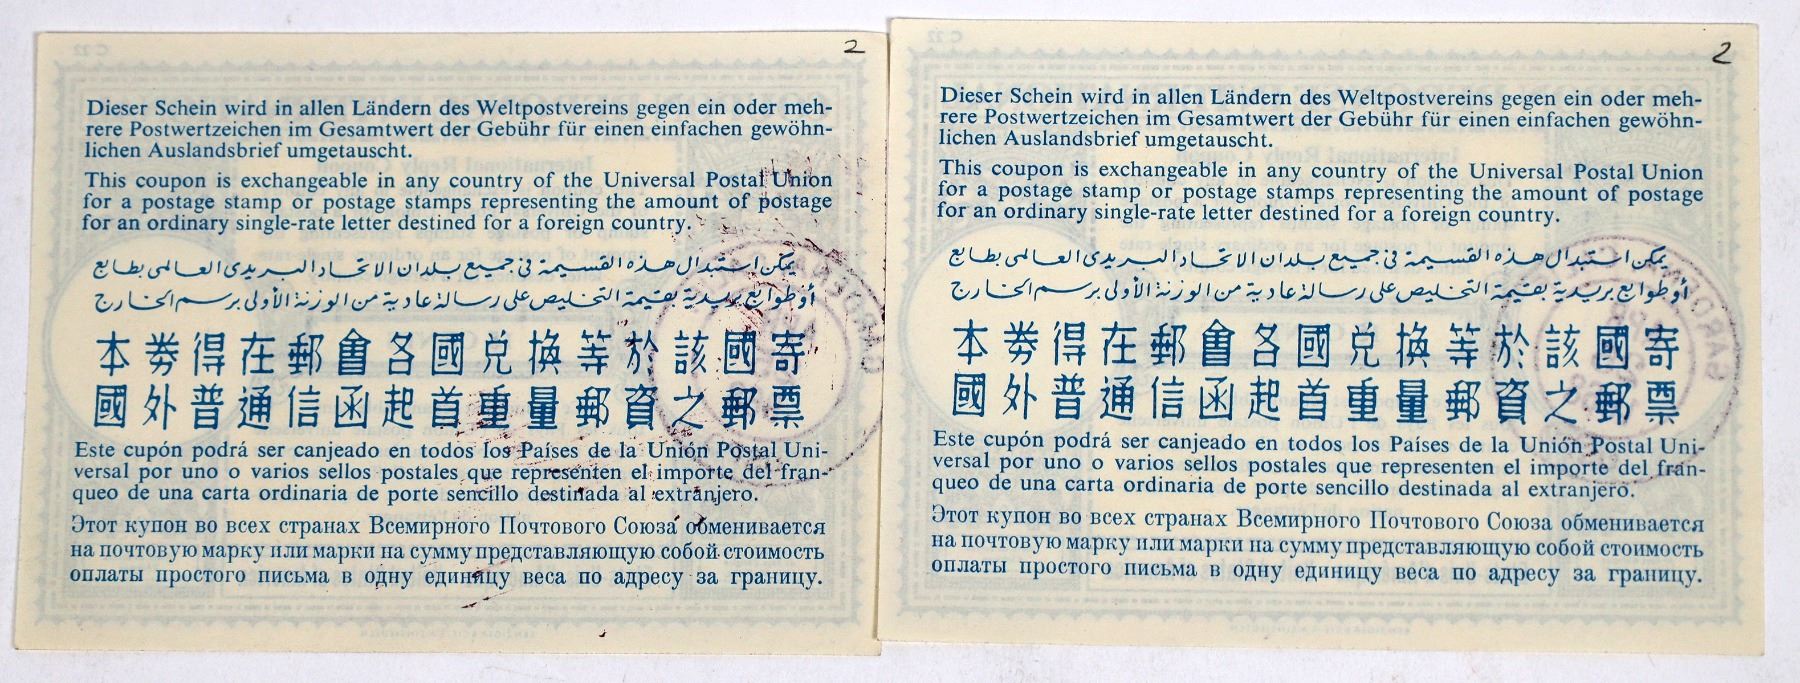 2
Dieser Schein wird in allen Ländern des Weltpostvereins gegen ein oder meh-
rere Postwertzeichen im Gesamtwert der Gebühr für einen einfachen gewöhn-
lichen Auslandsbrief umgetauscht.
This coupon is exchangeable in any country of the Universal Postal Union
for a postage stamp or postage stamps representing the amount of postage
for an ordinary single-rate letter destined for a foreign country.
يمكن استبدال هذه القسيمة فى جميع بلدان الاتحاد البريدى العالمى بطابع
أو طوابع بريدية بقيمة التخليص على رسالة عادية من الوزنة الأولى برسم الخارج
本券得在郵會各國兌換等於該國寄
國外普通信函起首重量郵資之郵票
Este cupón podrá ser canjeado en todos los Países de la Unión Postal Uni-
versal por uno o varios sellos postales que representen el importe del fran-
queo de una carta ordinaria de porte sencillo destinada al extranjero.
Этот купон во всех странах Всемирного Почтового Союза обменивается
на почтовую марку или марки на сумму представляющую собой стоимость
оплаты простого письма в одну единицу веса по адресу за границу.
2
Dieser Schein wird in allen Ländern des Weltpostvereins gegen ein oder meh-
rere Postwertzeichen im Gesamtwert der Gebühr für einen einfachen gewöhn-
lichen Auslandsbrief umgetauscht.
This coupon is exchangeable in any country of the Universal Postal Union
for a postage stamp or postage stamps representing the amount of postage
for an ordinary single-rate letter destined for a foreign country.
يمكن استبدال هذه القسيمة فى جميع بلدان الاتحاد البريدى العالمى بطابع
أو طوابع بريدية بقيمة التخليص على رسالة عادية من الوزنة الأولى برسم الخارج
本券得在郵會各國兌換等於該國寄
國外普通信函起首重量郵資之郵票
Este cupón podrá ser canjeado en todos los Países de la Unión Postal Uni-
versal por uno o varios sellos postales que representen el importe del fran-
queo de una carta ordinaria de porte sencillo destinada al extranjero.
Этот купон во всех странах Всемирного Почтового Союза обменивается
на почтовую марку или марки на сумму представляющую собой стоимость
оплаты простого письма в одну единицу веса по адресу за границу.